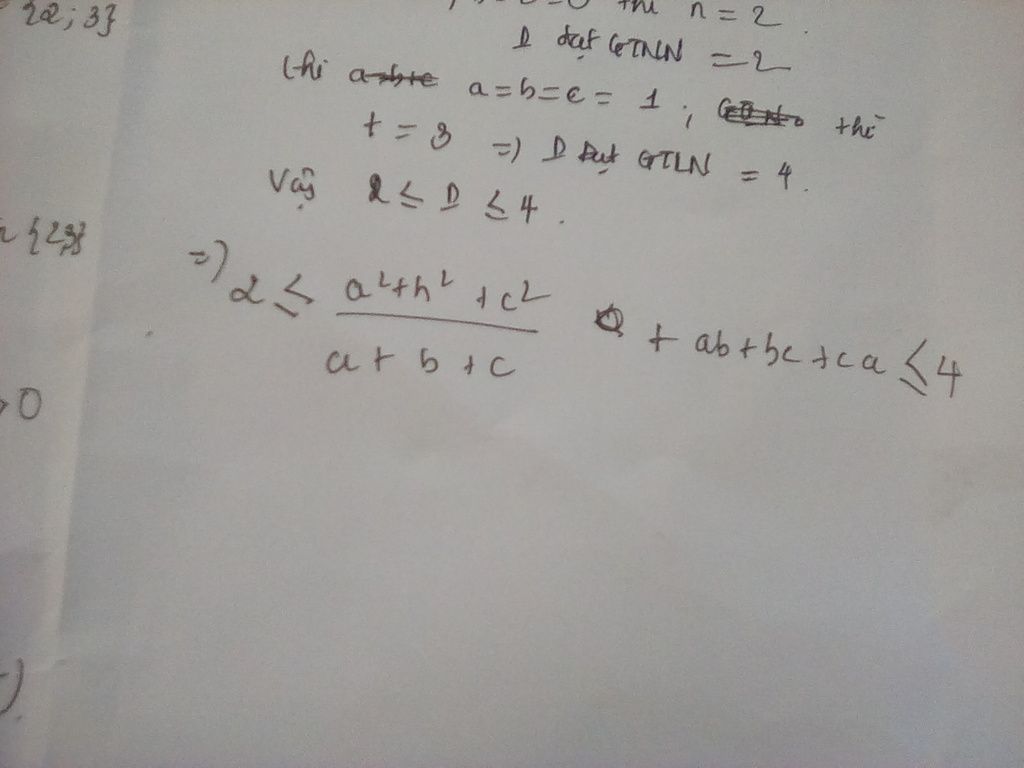 {2;3}
= 0 thì n = 2.
D đạt GTNN = 2
khi a=b=c= 1; thì
t = 3 =) D đạt GTLN = 4.
Vậy 2 ≤ D ≤ 4.
=) 2 ≤ (a²+b²+c²)/(a+b+c) + ab+bc+ca ≤ 4
0